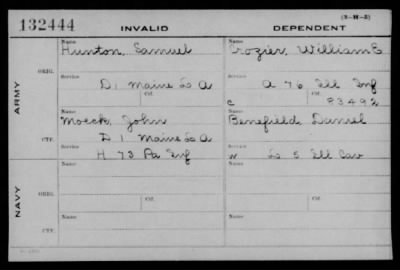 (3-H-5)
132444 INVALID DEPENDENT
Name Name
Hunton, Samuel Crozier, William E
ORIG.
Service Service
D, 1 Maine L A A 76 Ill Inf
Ctf. Ctf.
C 83492
ARMY
Name Name
Moeck, John Benefield, Daniel
D 1 Maine L A
Service Service
H 73 Pa Inf L 5 Ill Cav
CTF.
Name Name
ORIG.
Ctf. Ctf.
NAVY
Name Name
CTF.